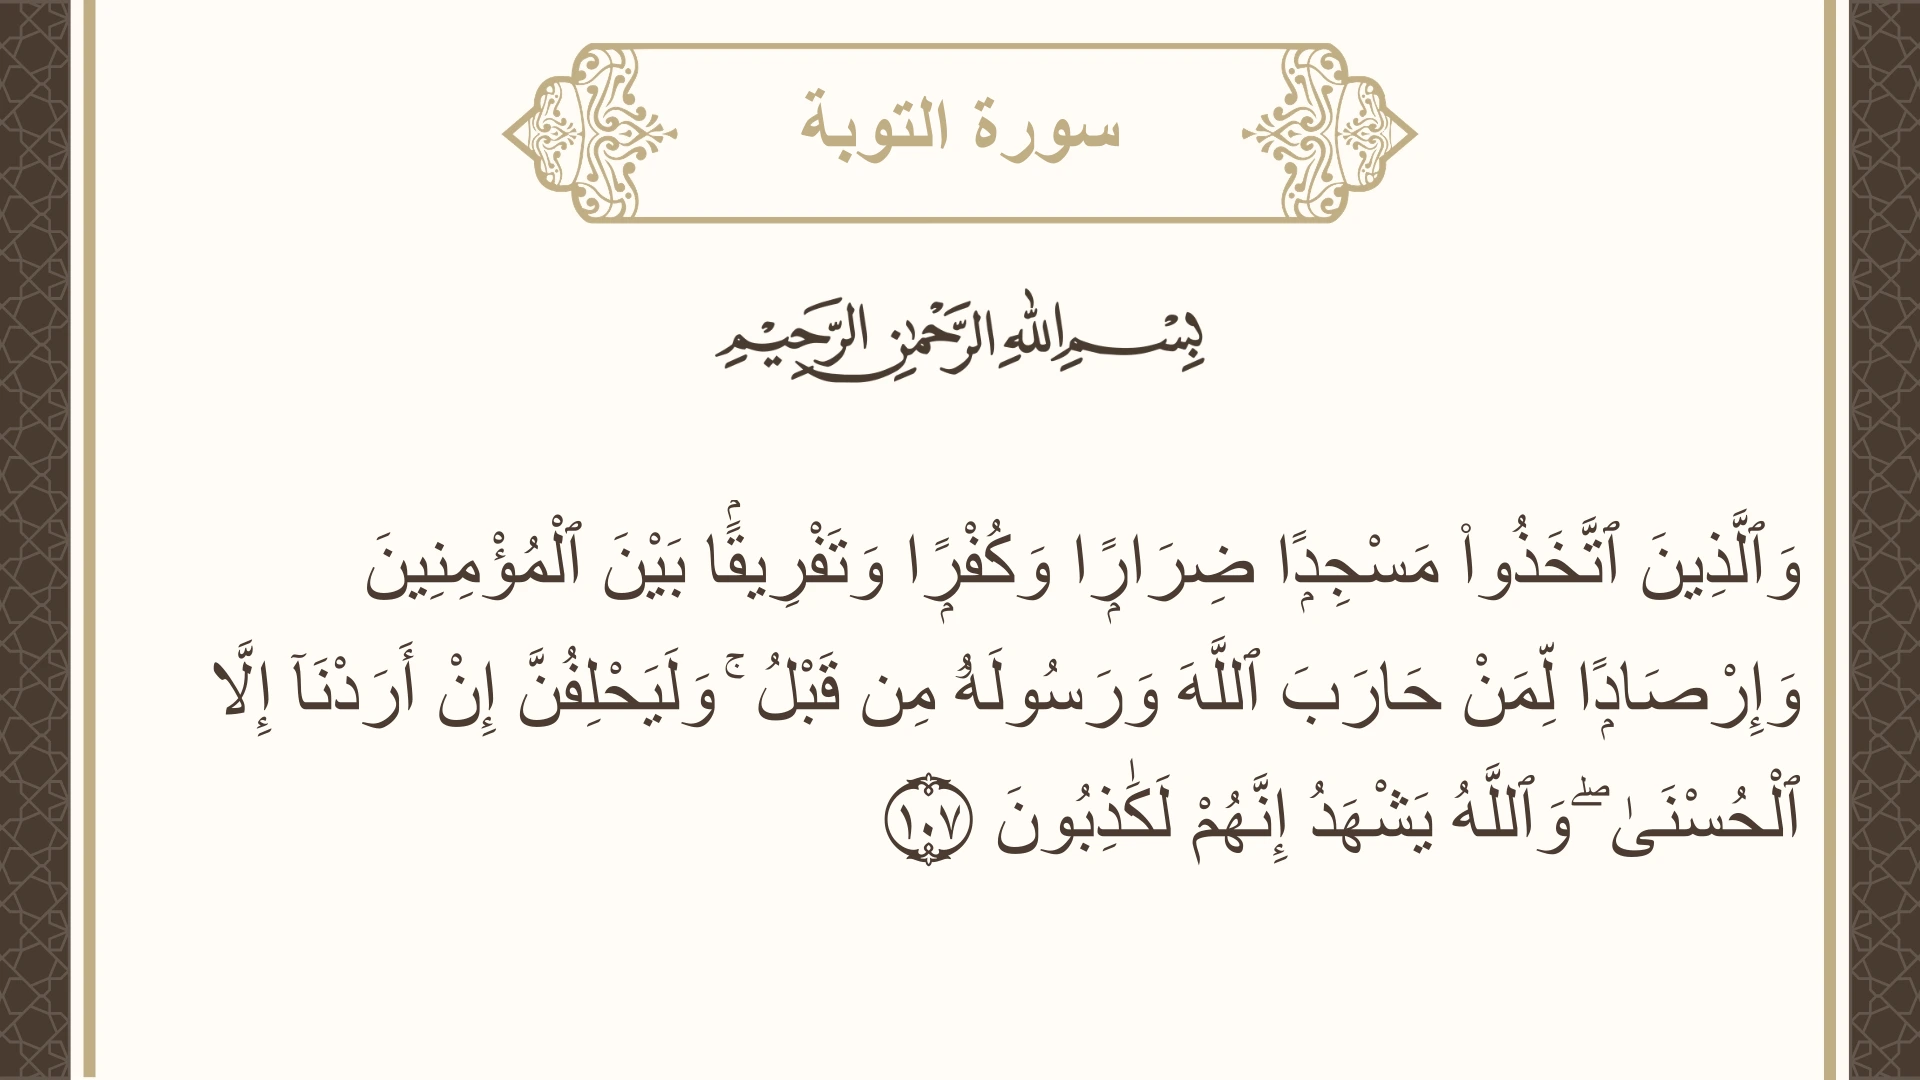 سورة التوبة
بِسْمِ اللهِ الرَّحْمٰنِ الرَّحِيْمِ
وَٱلَّذِينَ ٱتَّخَذُوا۟ مَسْجِدًۭا ضِرَارًۭا وَكُفْرًۭا وَتَفْرِيقًۢا بَيْنَ ٱلْمُؤْمِنِينَ
وَإِرْصَادًۭا لِّمَنْ حَارَبَ ٱللَّهَ وَرَسُولَهُۥ مِن قَبْلُ ۚ وَلَيَحْلِفُنَّ إِنْ أَرَدْنَآ إِلَّا
ٱلْحُسْنَىٰ ۖ وَٱللَّهُ يَشْهَدُ إِنَّهُمْ لَكَٰذِبُونَ ١٠٧